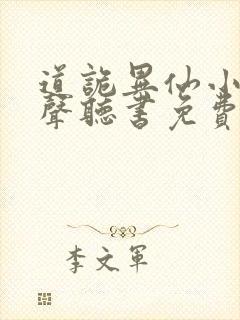 道詭異仙小
聲聽書免費
李文軍